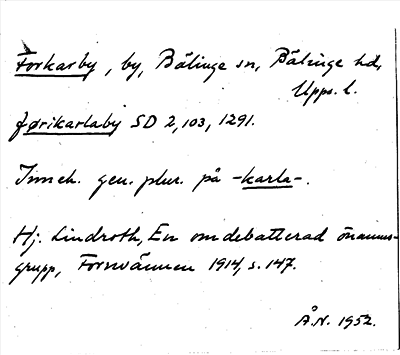 Forkarby, by, Bälinge sn, Bälinge hd,
Upps. l.
førikarlaby SD 2,103, 1291.
Inneh. gen. plur. på -karla-.
Hj. Lindroth, En omdebatterad önamns-
grupp, Fornvännen 1914, s. 147.
Å.N. 1952.